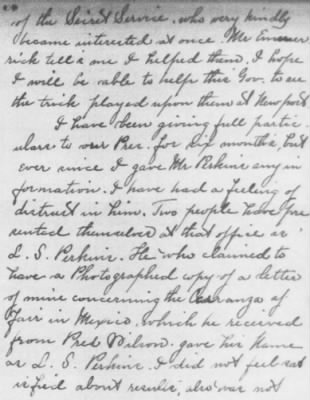 of the Secret Service. who very kindly
became interested at once. Mr Emmer
rick tells me I helped them. I hope
I will be able to help this Gov. to see
the trick played upon them at Newport
I have been giving full partic
ulars to our Pres. for six months, but
ever since I gave Mr Perkins any in
formation. I have had a feeling of
distrust in him. Two people have pre
sented themselves at that office as
L. S. Perkins. He who claimed to
have a Photographed copy of a letter
of mine concerning the Carranza af
fair in Mexico. which he received
from Pres Wilson. gave his name
as L. S. Perkins. I did not feel sat
isfied about results, also was not